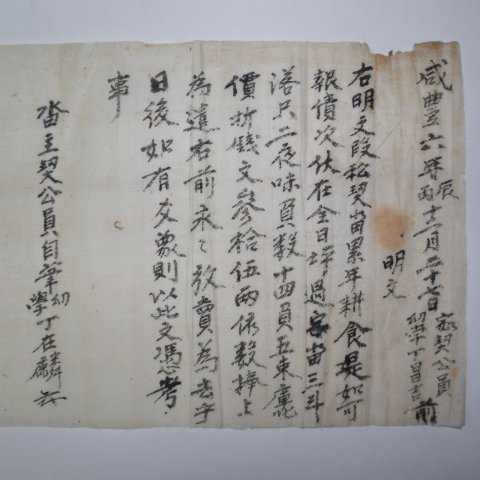 咸豊六年丙辰十二月二十七日 家契公員幼學丁昌吉前
明文
右明文段松契畓累年耕食是如可
報債次伏在全日坪過字畓三斗
落只二夜味負數十四負五束廤
價折錢文參拾伍兩依數捧上
為遣右前永〻放賣為去乎
日後如有 則以此文憑考
事
畓主契公員自筆幼學丁在麟